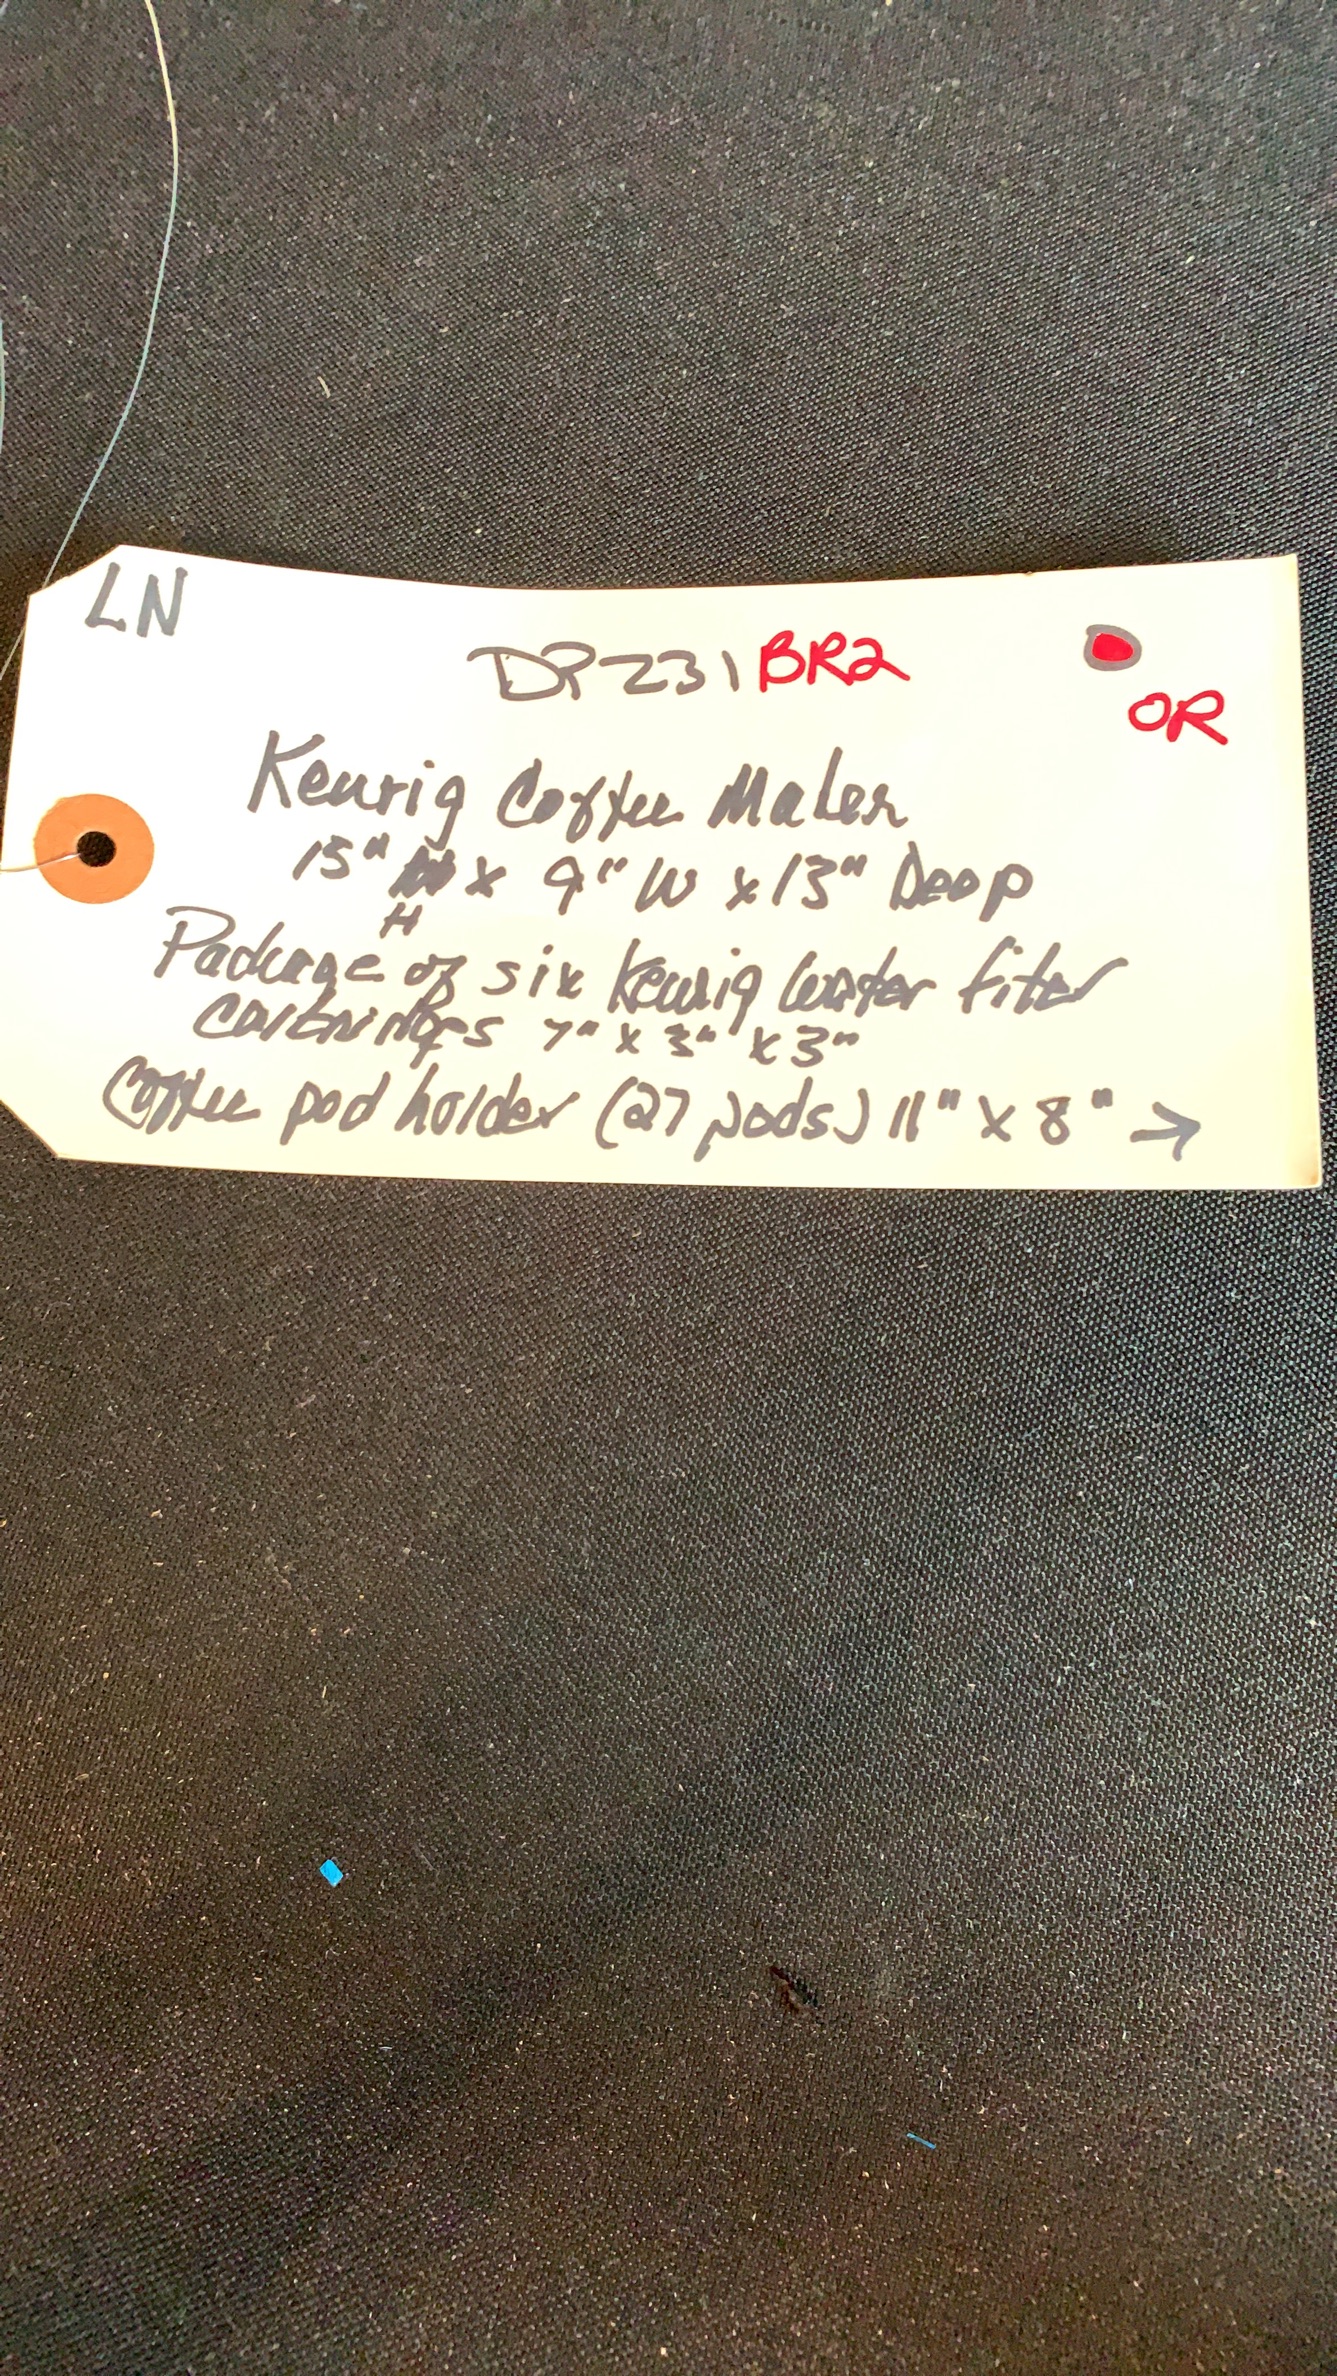 LN
DP231 BR2
OR
Keurig Coffee Maker
15" H x 9" W x 13" Deep
Package of six Keurig water filter
7" x 3" x 3"
Coffee pod holder (27 pods) 11" x 8" →